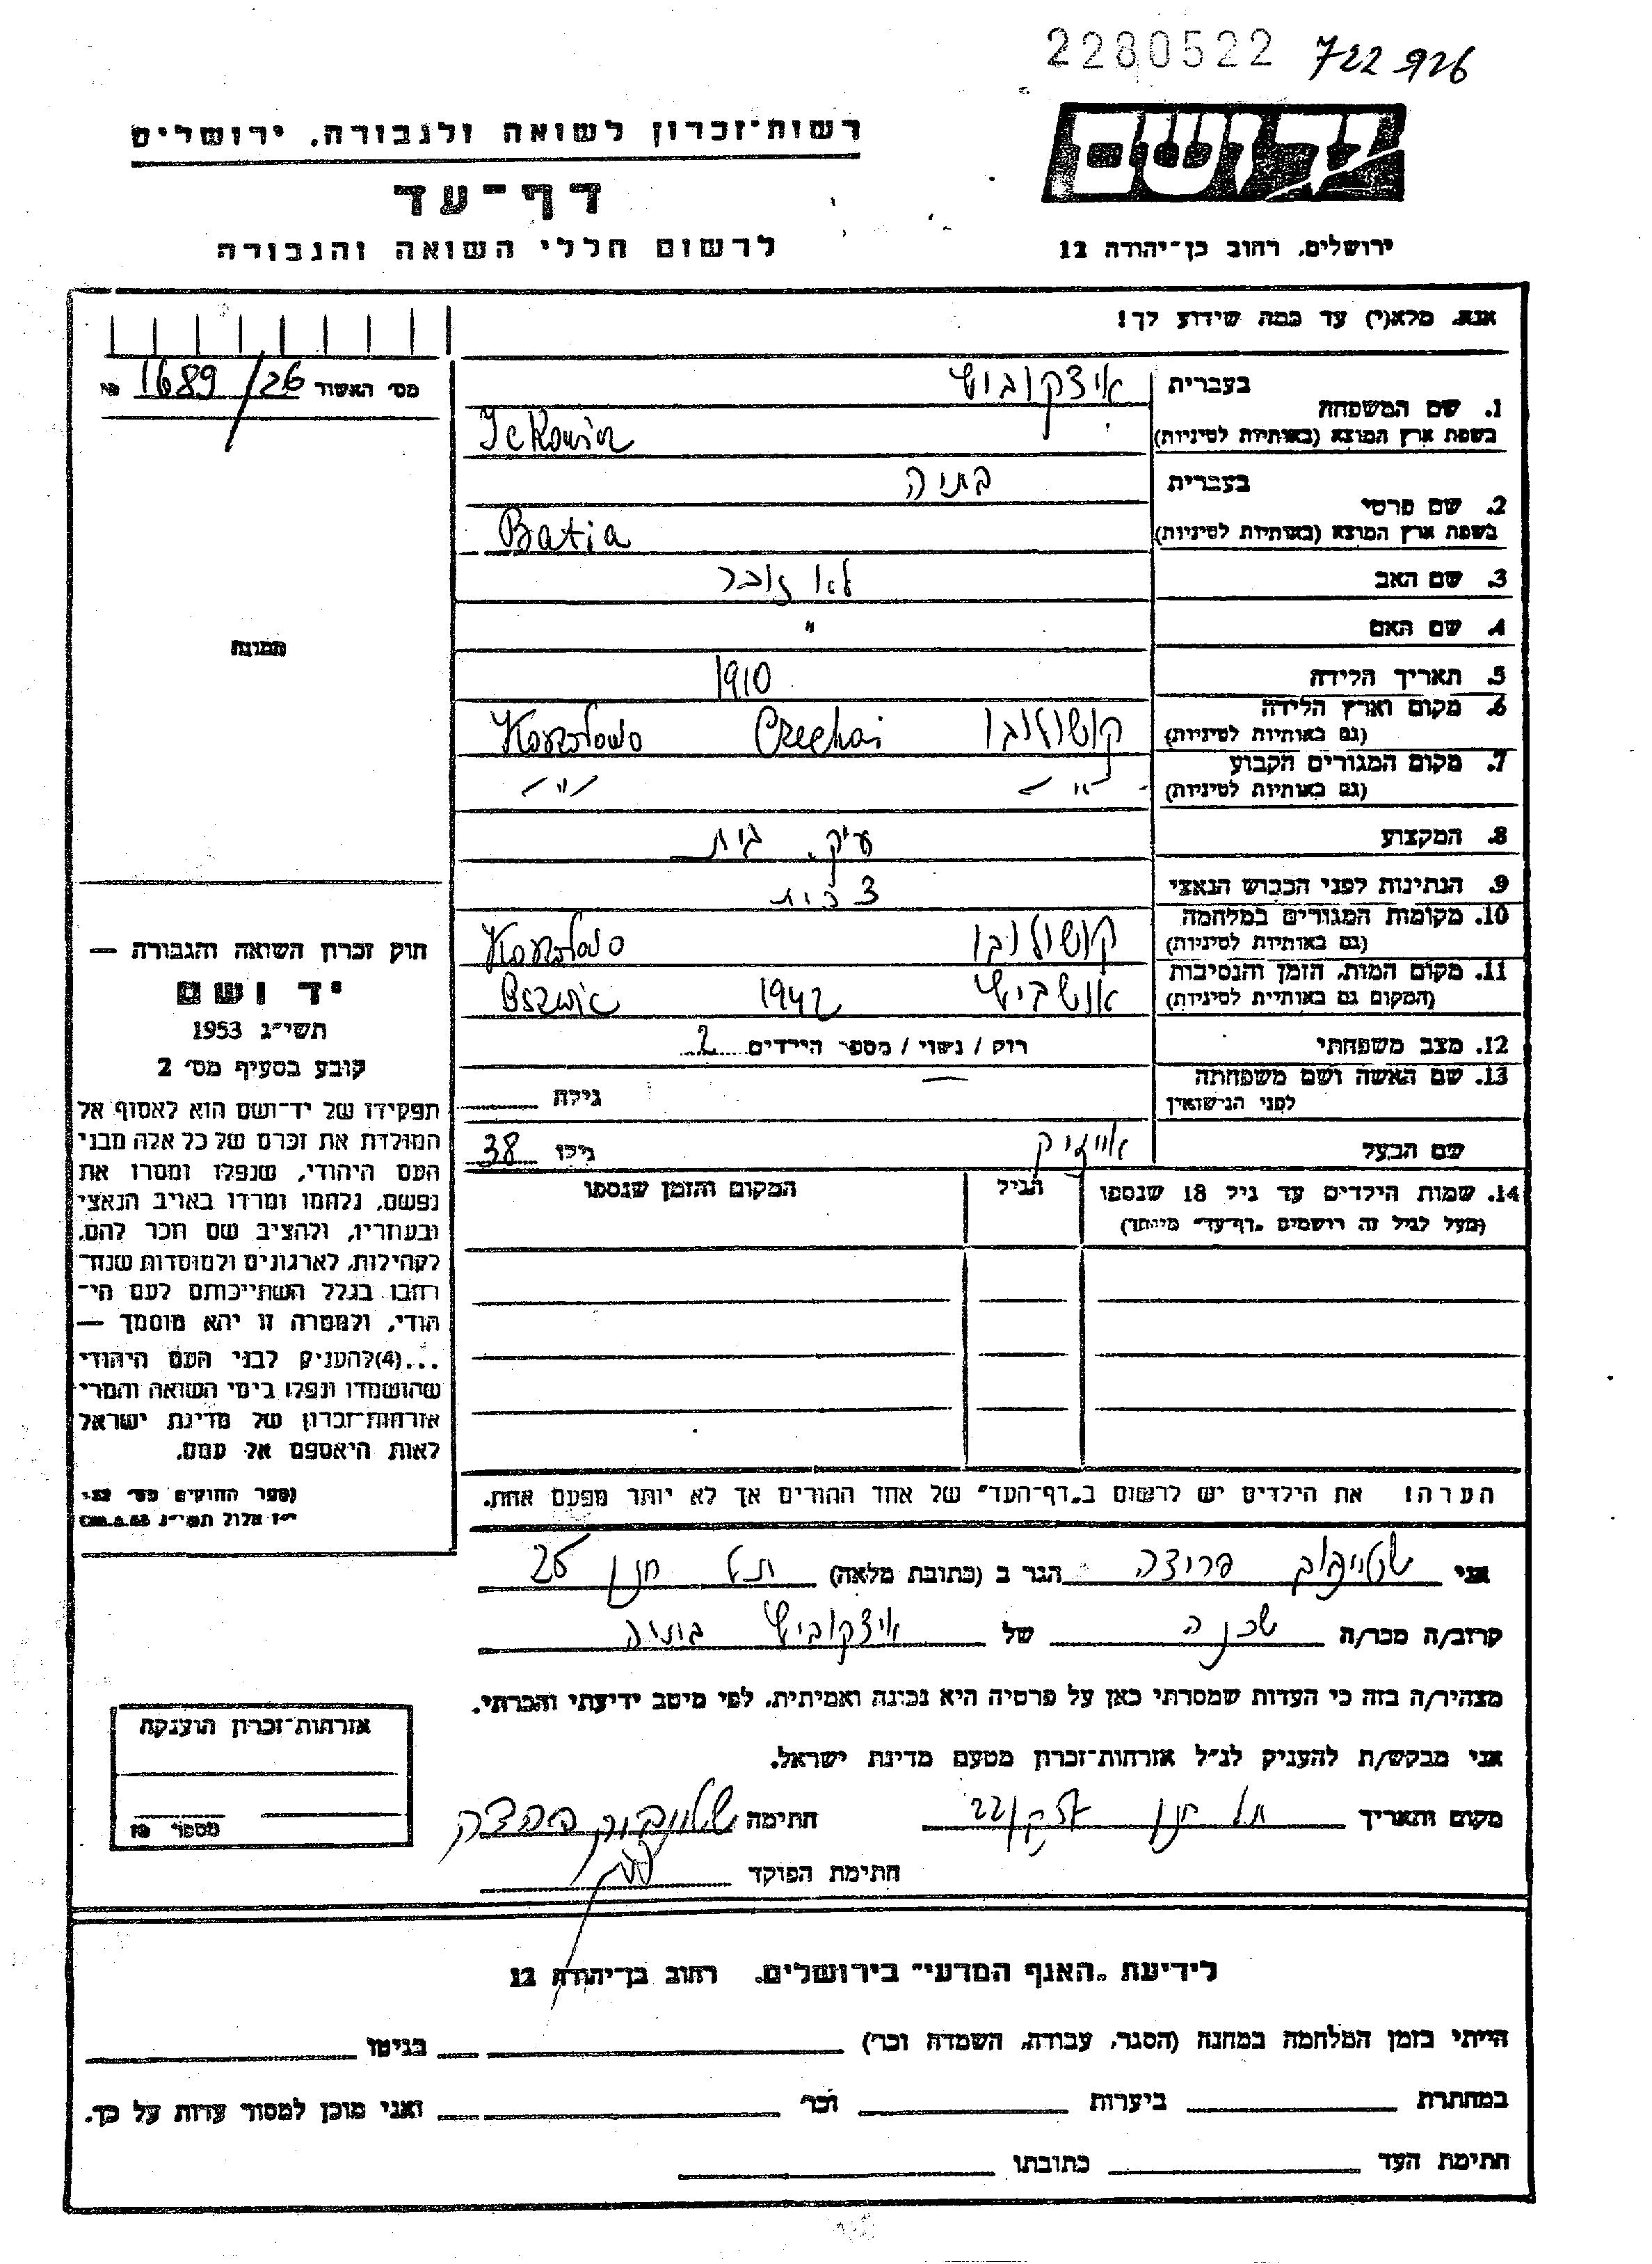 2280522 722 926
יד ושם
ירושלים, רחוב בן־יהודה 12
רשות־זכרון לשואה ולגבורה, ירושלים
דף־עד
לרשום חללי השואה והגבורה
אנא, מלא(י) עד כמה שידוע לך!
מס׳ האשור 1689/26 №
1. שם המשפחה
בעברית איצקוביש
בשפת ארץ המוצא (באותיות לטיניות)
2. שם פרטי
בעברית בתיה
בשפת ארץ המוצא (באותיות לטיניות) Batia
3. שם האב לא זוכר
4. שם האם "
5. תאריך הלידה 1910
6. מקום וארץ הלידה
(גם באותיות לטיניות)
7. מקום המגורים הקבוע
(גם באותיות לטיניות) -"- -"-
8. המקצוע עק. בית
9. הנתינות לפני הכבוש הנאצי
10. מקומות המגורים במלחמה
(גם באותיות לטיניות)
11. מקום המות, הזמן והנסיבות
(המקום גם באותיות לטיניות) אושביץ 1942
12. מצב משפחתי רוק / נשוי / מספר הילדים 2
13. שם האשה ושם משפחתה
לפני הנישואין — גילה
שם הבעל אייזיק גילו 38
14. שמות הילדים עד גיל 18 שנספו הגיל המקום והזמן שנספו
(מעל לגיל זה רושמים „דף־עד" מיוחד)
הערה: את הילדים יש לרשום ב„דף־העד" של אחד ההורים אך לא יותר מפעם אחת.
תמונה
חוק זכרון השואה והגבורה —
יד ושם
תשי״ג 1953
קובע בסעיף מס׳ 2
תפקידו של יד־ושם הוא לאסוף אל
המולדת את זכרם של כל אלה מבני
העם היהודי, שנפלו ומסרו את
נפשם, נלחמו ומרדו באויב הנאצי
ובעוזריו, ולהציב שם וזכר להם,
לקהילות, לארגונים ולמוסדות שנח־
רבו בגלל השתייכותם לעם הי־
הודי, ולמטרה זו יהא מוסמך —
...(4)להעניק לבני העם היהודי
שהושמדו ונפלו בימי השואה והמרי
אזרחות־זכרון של מדינת ישראל
לאות היאספם אל עמם.
(ספר החוקים מס׳ 132,
י״ז אלול תשי״ג 28.8.53)
אני הגר ב (כתובת מלאה) תל חנן 25
קרוב/ה מכר/ה שכנה של איצקוביש בתיה
מצהיר/ה בזה כי העדות שמסרתי כאן על פרטיה היא נכונה ואמיתית, לפי מיטב ידיעתי והכרתי.
אני מבקש/ת להעניק לנ״ל אזרחות־זכרון מטעם מדינת ישראל.
מקום ותאריך תל חנן חתימה
חתימת הפוקד
אזרחות־זכרון הוענקה
מספר №
לידיעת „האגף המדעי" בירושלים, רחוב בן־יהודה 12
הייתי בזמן המלחמה במחנה (הסגר, עבודה, השמדה וכו׳) בגיטו
במחתרת ביערות וכו׳ ואני מוכן למסור עדות על כך.
חתימת העד כתובתו